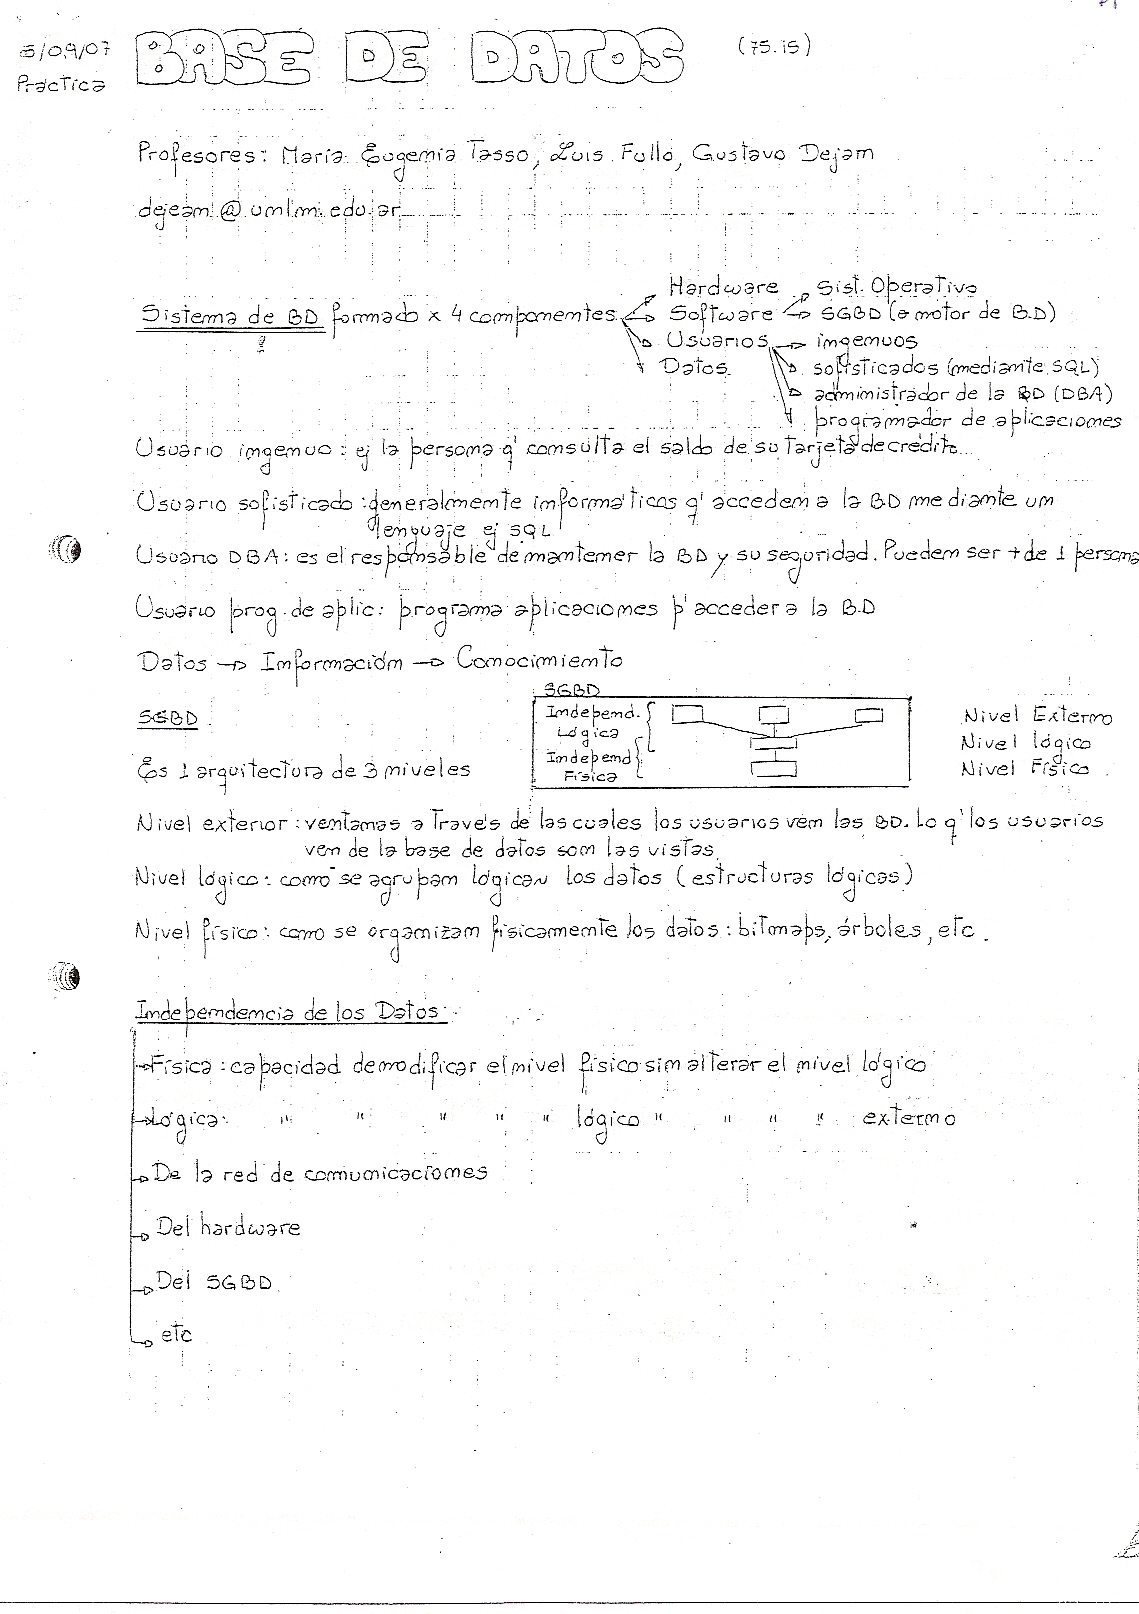 5/09/07
Práctica
BASE DE DATOS (75.15)
Profesores: María Eugenia Tasso, Luis Fulló, Gustavo Dejam
dejean@unlm.edu.ar
Sistema de BD formado x 4 componentes
Hardware
Software → Sist. Operativo
→ SGBD (o motor de B.D)
Usuarios → ingenuos
sofisticados (mediante SQL)
administrador de la BD (DBA)
programador de aplicaciones
Datos
Usuario ingenuo: ej la persona q' consulta el saldo de su tarjeta de crédito
Usuario sofisticado: generalmente informáticos q' acceden a la BD mediante un
lenguaje ej SQL
Usuario DBA: es el responsable de mantener la BD y su seguridad. Pueden ser + de 1 persona
Usuario prog. de aplic: programa aplicaciones p' acceder a la BD
Datos → Información → Conocimiento
SGBD
Es 1 arquitectura de 3 niveles
SGBD
Independ.
Lógica
Independ
Física
Nivel Externo
Nivel lógico
Nivel Físico
Nivel exterior: ventanas a través de las cuales los usuarios ven las BD. Lo q' los usuarios
ven de la base de datos son las vistas
Nivel lógico: como se agrupan lógican los datos (estructuras lógicas)
Nivel físico: como se organizan físicamente los datos: bitmaps, árboles, etc.
Independencia de los Datos
→ Física: capacidad de modificar el nivel físico sin alterar el nivel lógico
→ Lógica: " " " " " lógico " " " " externo
→ De la red de comunicaciones
→ Del hardware
→ Del SGBD
→ etc